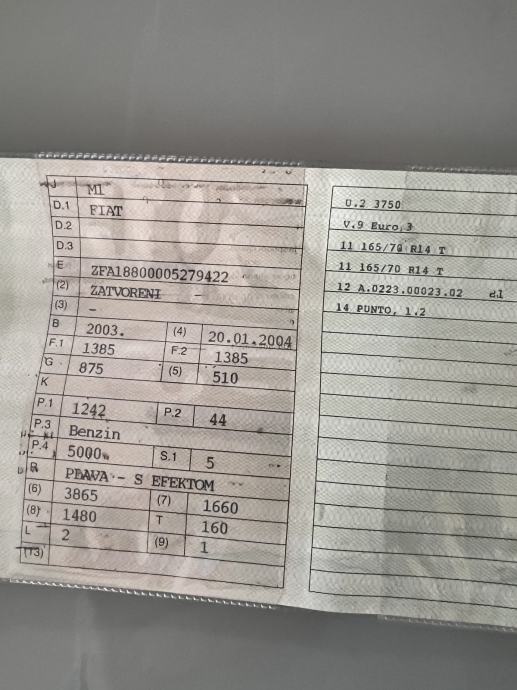 J M1
D.1 FIAT
D.2
D.3
E ZFA18800005279422
(2) ZATVORENI -
(3) -
B 2003. (4) 20.01.2004
F.1 1385 F.2 1385
G 875 (5) 510
K
P.1 1242 P.2 44
P.3 Benzin
P.4 5000 S.1 5
R PLAVA - S EFEKTOM
(6) 3865 (7) 1660
(8) 1480 T 160
L 2 (9) 1
(13)
U.2 3750
V.9 Euro 3
11 165/70 R14 T
11 165/70 R14 T
12 A.0223.00023.02 d1
14 PUNTO, 1.2